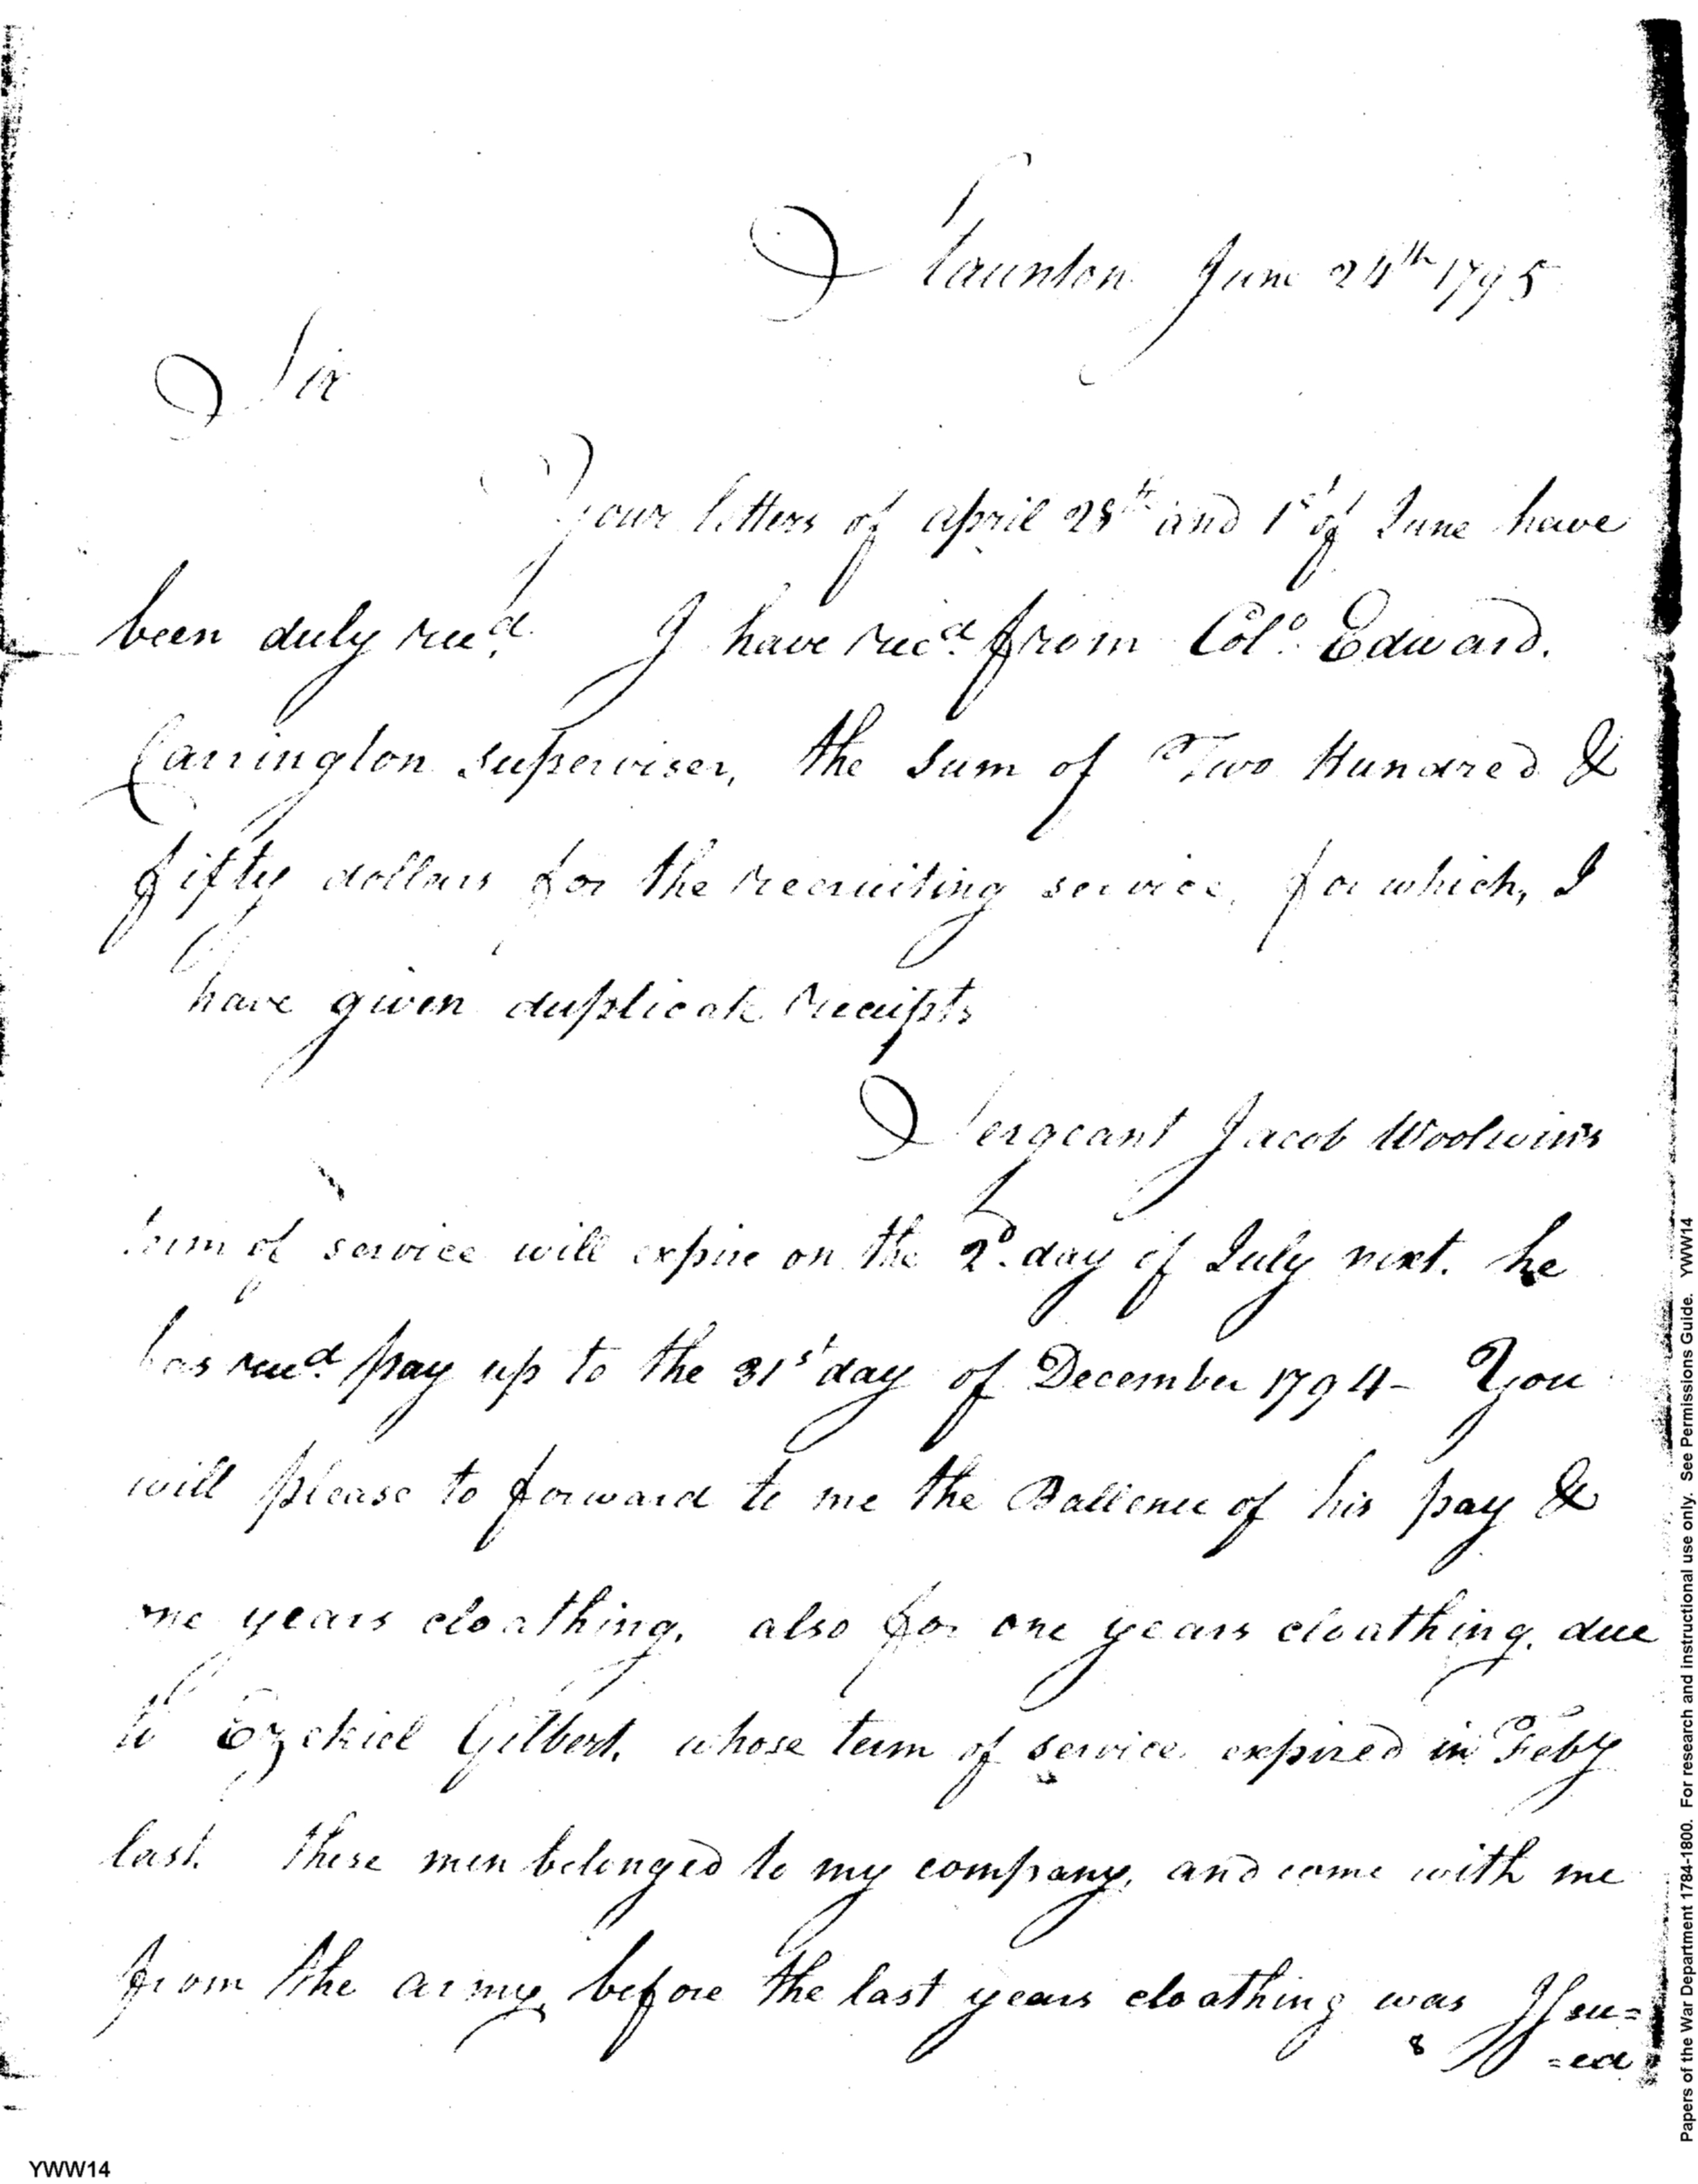 Staunton June 24th 1795
Sir
Your letters of april 28th and 1st of June have
been duly recd. I have recd from Colo. Edward.
Carrington superviser, the sum of Two Hundred &
fifty dollars for the recruiting service, for which, I
have given duplicate receipts
Sergeant Jacob Woolwins
term of service will expire on the 2d. day of July next. he
has recd. pay up to the 31st day of December 1794- You
will please to forward to me the Ballence of his pay &
one years cloathing, also for one years cloathing, due
to Ezekiel Gilbert, whose term of service expired in Feby
last. these men belonged to my company, and come with me
from the army, before the last years cloathing was Issu=
=ed
8
Papers of the War Department 1784-1800. For research and instructional use only. See Permissions Guide. YWW14
YWW14